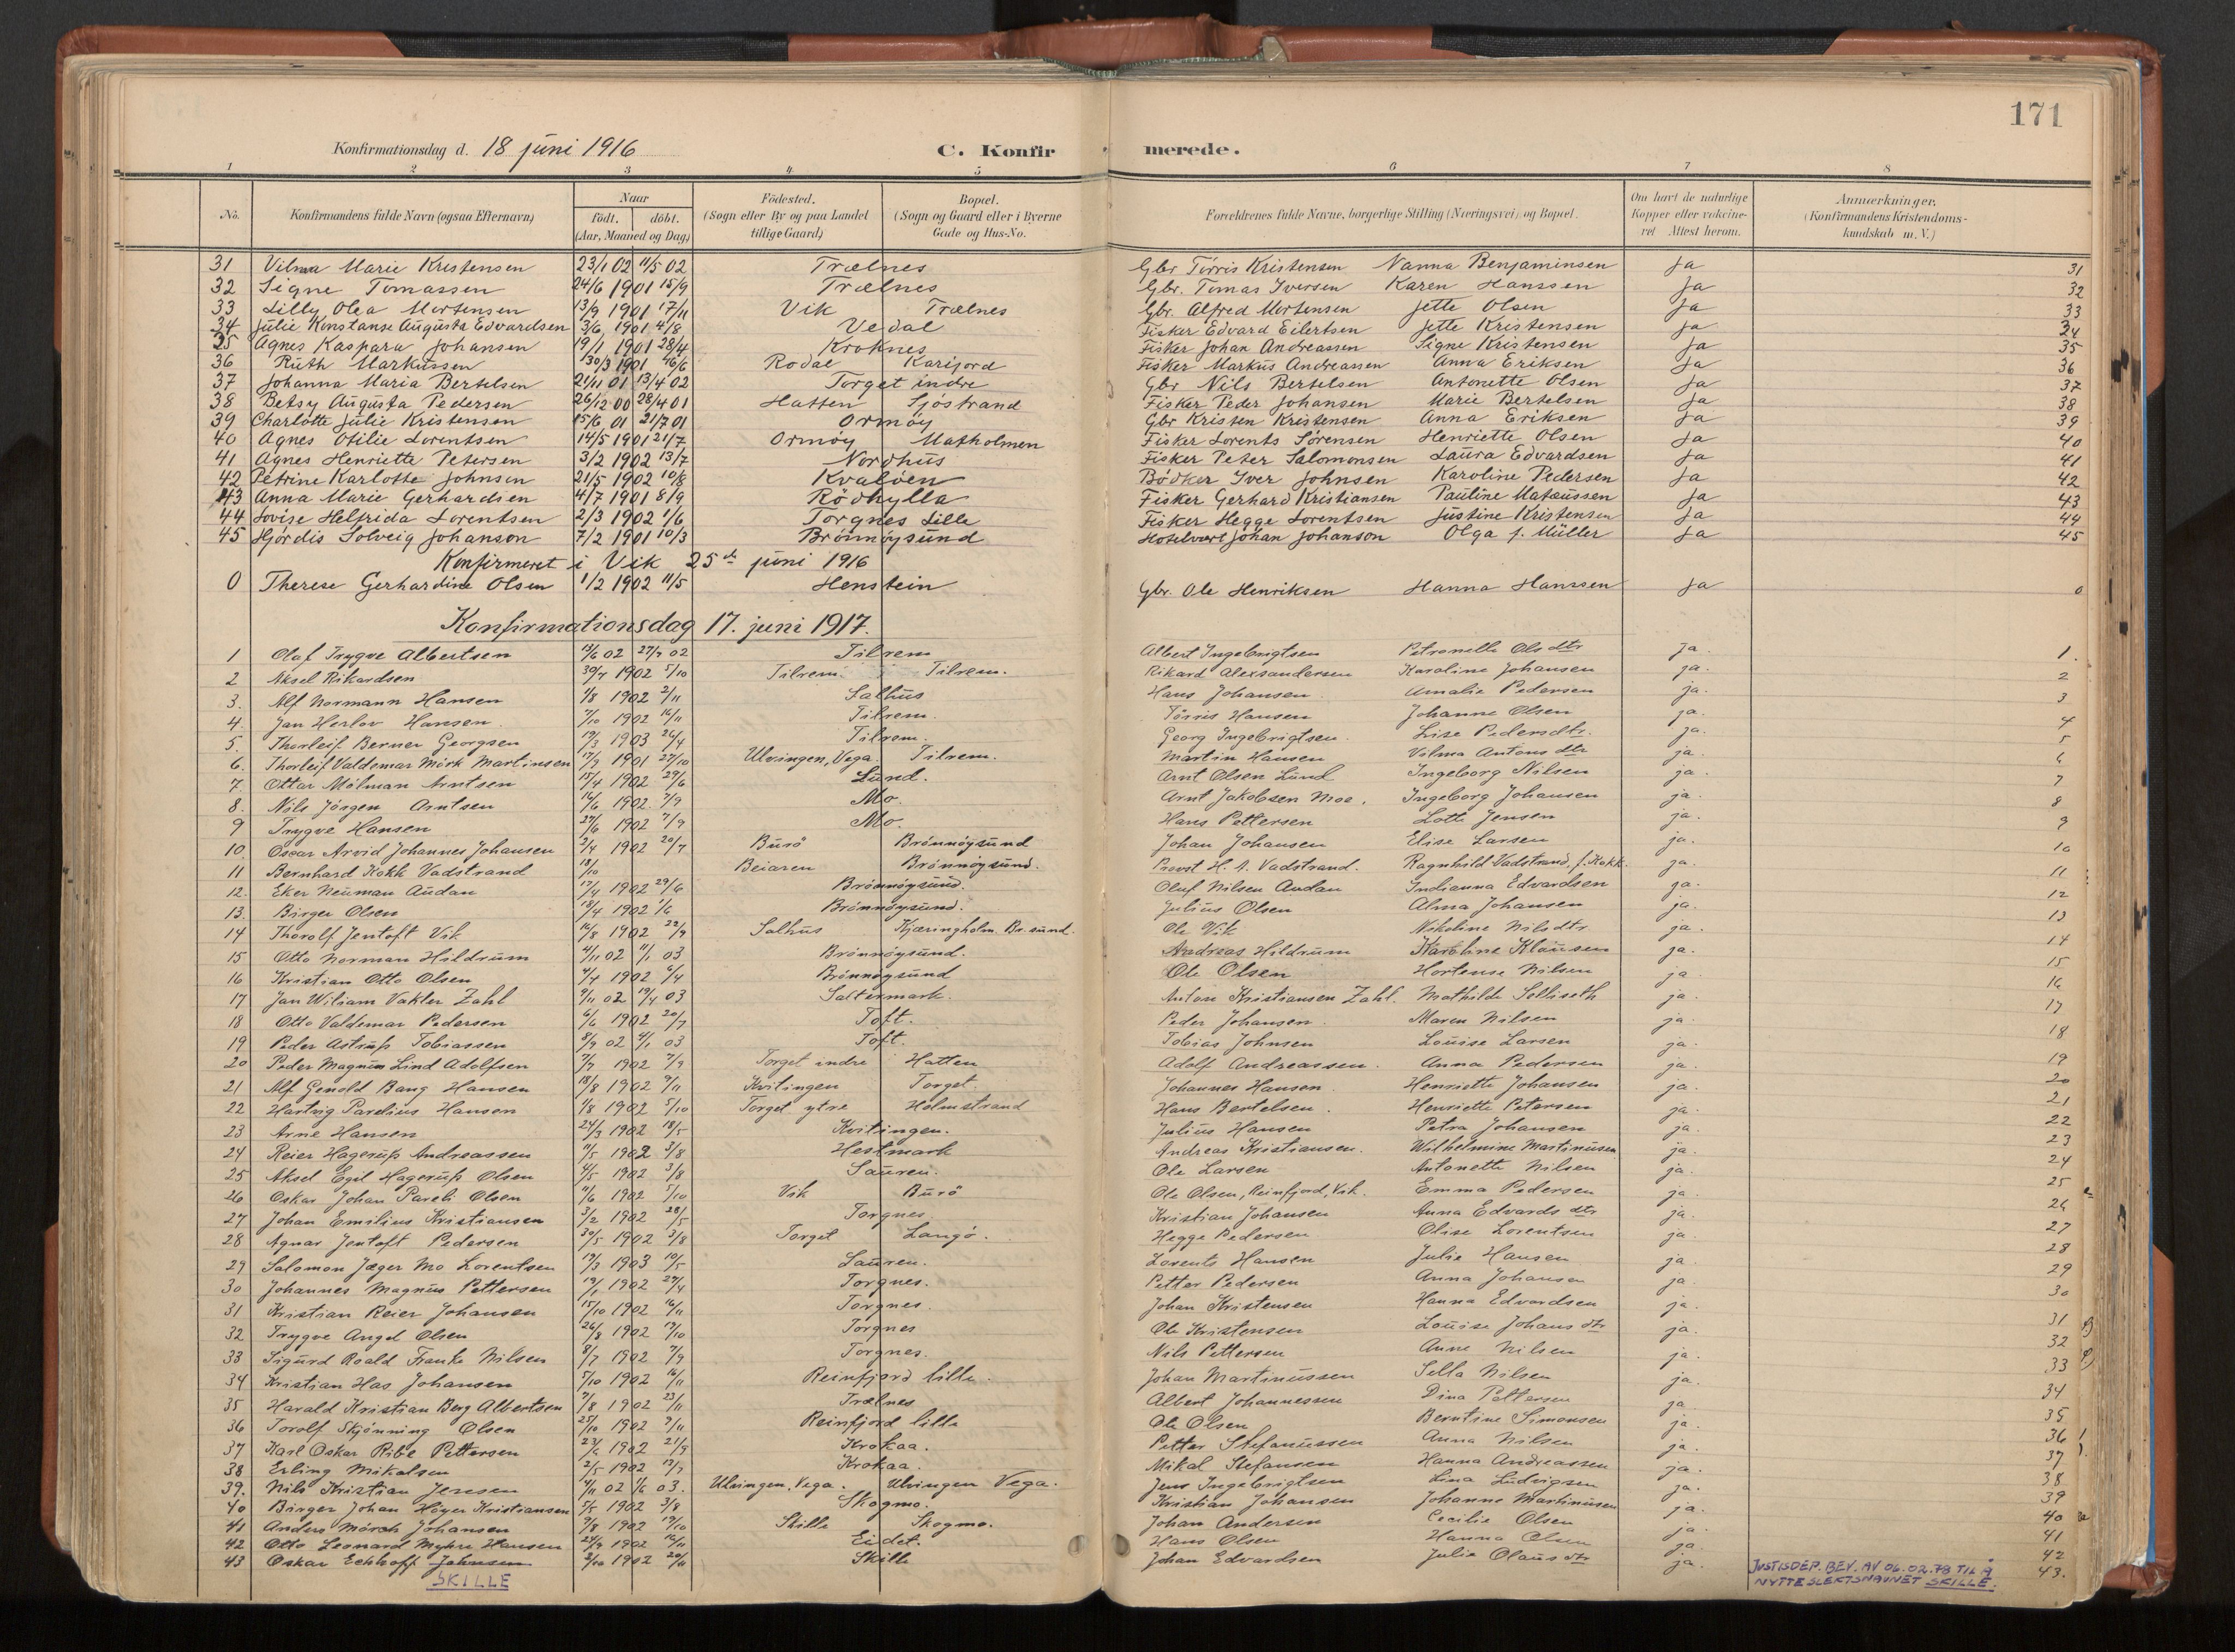 171
Konfirmationsdag d. 18 juni 1916 C. Konfir merede.
1 2 3 4 5 6 7 8
No. Konfirmandens fulde Navn (ogsaa Efternavn) Naar født. döbt. (Aar, Maaned og Dag) Födested. (Sogn eller By og paa Landet tillige Gaard) Bopæl. (Sogn og Gaard eller i Byerne Gade og Hus-No. Forældrenes fulde Navne, borgerlige Stilling (Næringsvei) og Bopæl. Om havt de naturlige Kopper eller vakcineret Attest herom. Anmærkninger. (Konfirmandens Kristendomskundskab m. V.)
31 Vilma Marie Kristensen 23/1 02 11/5 02 Trælnes Gbr Törris Kristensen Nanna Benjaminsen Ja 31
32 Signe Tomassen 24/6 1901 15/9 Trælnes Gbr. Tomas Iversen Karen Hanssen Ja 32
33 Lilly Olea Mortensen 13/9 1901 17/11 Vik Trælnes Gbr. Alfred Mortensen Jette Olsen Ja 33
34 Julie Konstanse Augusta Edvardsen 3/6 1901 4/8 Vedal Fisker Edvard Eilertsen Jette Kristensen Ja 34
35 Agnes Kaspara Johansen 19/1 1901 28/4 Kroknes Fisker Johan Andreassen Signe Kristensen Ja 35
36 Ruth Markussen 30/3 1901 16/6 Rodal Karijord Fisker Markus Andreassen Anna Eriksen Ja 36
37 Johanna Maria Bertelsen 21/11 01 13/4 02 Torget indre Gbr Nils Bertelsen Antonette Olsen Ja 37
38 Betsy Augusta Pedersen 26/12 00 28/4 01 Hatten Sjöstrand Fisker Peder Johansen Marie Bertelsen Ja 38
39 Charlotte Julie Kristensen 15/6 01 21/7 01 Ormöy Gbr Kristen Kristensen Anna Eriksen Ja 39
40 Agnes Otilie Lorentsen 14/5 1901 21/7 Ormöy Matholmen Fisker Lorents Sörensen Henriette Olsen Ja 40
41 Agnes Henriette Petersen 3/2 1902 13/7 Nordhus Fisker Peter Salomonsen Laura Edvardsen Ja 41
42 Petrine Karlotte Johnsen 21/5 1902 10/8 Kvalöen Bödker Iver Johnsen Karoline Pedersen Ja 42
43 Anna Marie Gerhardsen 4/7 1901 8/9 Rödhylla Fisker Gerhard Kristiansen Pauline Mateussen Ja 43
44 Lovise Helfrida Lorentsen 2/3 1902 1/6 Torgnes Lille Fisker Hegge Lorentsen Justine Kristensen Ja 44
45 Hjördis Solveig Johanson 7/2 1901 10/3 Brönnöysund Hotelvært Johan Johanson Olga f. Müller Ja 45
Konfirmeret i Vik 25de juni 1916
0 Therese Gerhardine Olsen 1/2 1902 11/5 Henstein Gbr. Ole Henriksen Hanna Hanssen Ja 0
Konfirmationsdag 17. juni 1917.
1 Olaf Trygve Albertsen 13/6 02 27/7 02 Tilrem Albert Ingebrigtsen Petronelle Olsdtr ja. 1.
2 Aksel Rikardsen 30/7 1902 5/10 Tilrem. Tilrem. Rikard Alexsandersen Karoline Johansen ja. 2
3. Alf Normann Hansen 1/8 1902 2/11 Salhus Hans Johansen Amalie Pedersen ja. 3
4. Jan Herlov Hansen 7/10 1902 16/11 Tilrem. Törris Hansen Johanne Olsen ja. 4
5. Thorleif Berner Georgsen 19/3 1903 26/4 Tilrem. Georg Ingebrigtsen. Lise Pedersdtr. ja. 5
6. Thorleif Valdemar Mörk Martinsen 17/9 1901 27/10 Ulvingen, Vega. Tilrem. Martin Hansen Vilma Antonsdtr ja. 6
7. Ottar Mölman Arntsen 15/4 1902 29/6 Lund. Arnt Olsen Lund Ingeborg Nilsen ja. 7
8. Nils Jörgen Arntsen 16/6 1902 7/9 Mo. Arnt Jakobsen Moe. Ingeborg Johansen ja. 8
9 Trygve Hansen 27/6 1902 7/9 Mo. Hans Pettersen Lotte Jensen ja. 9
10. Oscar Arvid Johannes Johansen 2/4 1902 20/7 Burö Brönnöysund Johan Johansen Elise Larsen ja. 10
11 Bernhard Kokk Vadstrand 18/10 Beiaren Brönnöysund. Provst H. A. Vadstrand. Ragnhild Vadstrand, f. Kokk. ja. 11
12. Eker Neuman Audan 17/4 1902 29/6 Brönnöysund. Oluf Nilsen Audan Indianna Edvardsen ja. 12
13. Birger Olsen 18/4 1902 1/6 Brönnöysund. Julius Olsen Alma Johansen ja. 13
14 Thorolf Jentoft Vik 16/8 1902 22/9 Salhus Kjæringholm. Br. sund. Ole Vik Nikoline Nilsdtr ja. 14
15 Otto Norman Hildrum 4/11 02 11/1 03 Brönnöysund. Andreas Hildrum Karoline Klausen ja. 15
16 Kristian Otto Olsen 4/4 1902 6/4 Brönnöysund Ole Olsen Hortense Nilsen ja 16
17 Jan Wiliam Vakler Zahl 9/11 02 19/4 03 Saltermark. Anton Kristiansen Zahl. Mathilde Selliseth ja. 17
18 Otto Valdemar Pedersen 6/6 1902 20/7 Toft. Peder Johansen Maren Nilsen ja. 18
19 Peder Astrup Tobiassen 8/9 02 4/1 03 Toft. Tobias Johnsen Louise Larsen ja. 19
20 Peder Magnus Lind Adolfsen 7/7 1902 7/9 Torget indre Hatten Adolf Andreassen. Anna Pedersen ja. 20
21 Alf Genold Bang Hansen 18/8 1902 9/11 Kvitingen Torget. Johannes Hansen. Henriette Johansen ja. 21
22 Hartvig Parelius Hansen 1/8 1902 5/10 Torget ytre Holmstrand Hans Bertelsen. Henriette Petersen ja. 22
23 Arne Hansen 24/3 1902 18/5 Kvitingen. Julius Hansen Petra Johansen ja. 23
24 Reier Hagerup Andreassen 11/5 1902 3/8 Hestmark Andreas Kristiansen. Wilhelmine Martinusen ja. 24
25 Aksel Egil Hagerup Olsen 4/5 1902 3/8 Sauren. Ole Larsen Antonette Nilsen ja. 25
26 Oskar Johan Pareli Olsen 11/6 1902 5/10 Vik Burö Ole Olsen, Reinfjord, Vik. Emma Pedersen ja. 26
27 Johan Emilius Kristiansen 3/2 1902 28/5 Torgnes Kristian Johansen Anna Edvardsdtr ja. 27
28 Agnar Jentoft Pedersen 30/5 1902 3/8 Torget Langö. Hegge Pedersen Olise Lorentsen ja. 28
29 Salomon Jæger Mo Lorentsen 19/3 1903 10/5 Sauren. Lorents Hansen Julie Hansen ja. 29
30 Johannes Magnus Pettersen 19/1 1902 27/4 Torgnes. Petter Pedersen Anna Johansen ja. 30
31 Kristian Reier Johansen 15/10 1902 16/11 Torgnes. Johan Kristensen Hanna Edvardsen ja. 31
32 Trygve Angel Olsen 26/8 1902 19/10 Torgnes Ole Kristensen Louise Johansdtr ja. 32
33 Sigurd Roald Franke Nilsen 8/7 1902 7/9 Torgnes. Nils Pettersen Anne Nilsen ja. 33
34 Kristian Has Johansen 5/10 1902 16/11 Reinfjord lille. Johan Martinussen Sella Nilsen ja. 34
35 Harald Kristian Berg Albertsen 7/8 1902 23/11 Trælnes Albert Johannessen Dina Pettersen ja. 35
36 Torolf Skjönning Olsen 25/10 1902 9/11 Reinfjord lille Ole Olsen Berntine Simonsen ja. 36
37 Karl Oskar Ribe Pettersen 23/6 1902 21/9 Krokaa. Petter Stefanussen Anna Nilsen ja. 37
38 Erling Mikalsen 2/5 1902 13/7 Krokaa. Mikal Stefansen Hanna Andreassen ja. 38
39. Nils Kristian Jensen 4/11 02 1/6 03. Ulvingen, Vega. Ulvingen Vega. Jens Ingebrigtsen Lina Ludvigsen ja. 39
40 Birger Johan Höyer Kristiansen 5/5 1902 3/8 Skogmo. Kristian Johansen Johanne Martinusen ja. 40
41 Anders Mörch Johansen 9/8 1902 19/10 Skille Skogmo. Johan Andersen Cecilie Olsen ja. 41
42 Otto Leonard Myhre Hansen 24/9 1902 16/11 Eidet. Hans Olsen Hanna Olsen ja. 42
43 Oskar Echhoff Johnsen 2/10 1902 20/11 Skille Johan Edvardsen Julie Olausdtr ja. 43.
SKILLE JUSTISDEP. BEV. AV 06.02.78 TIL Å NYTTE SLEKTSNAVNET SKILLE.